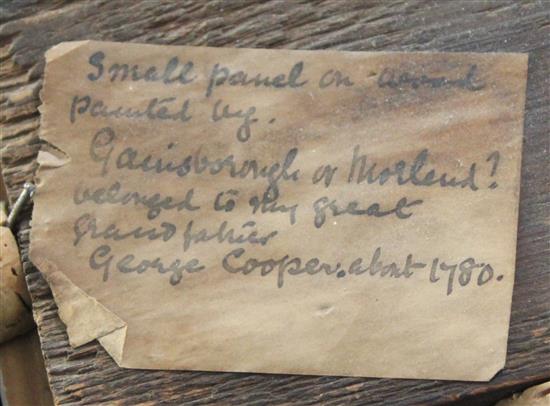 Small panel on wood
painted by.
Gainsborough or Morland?
belonged to my great
grandfather
George Cooper. about 1780.